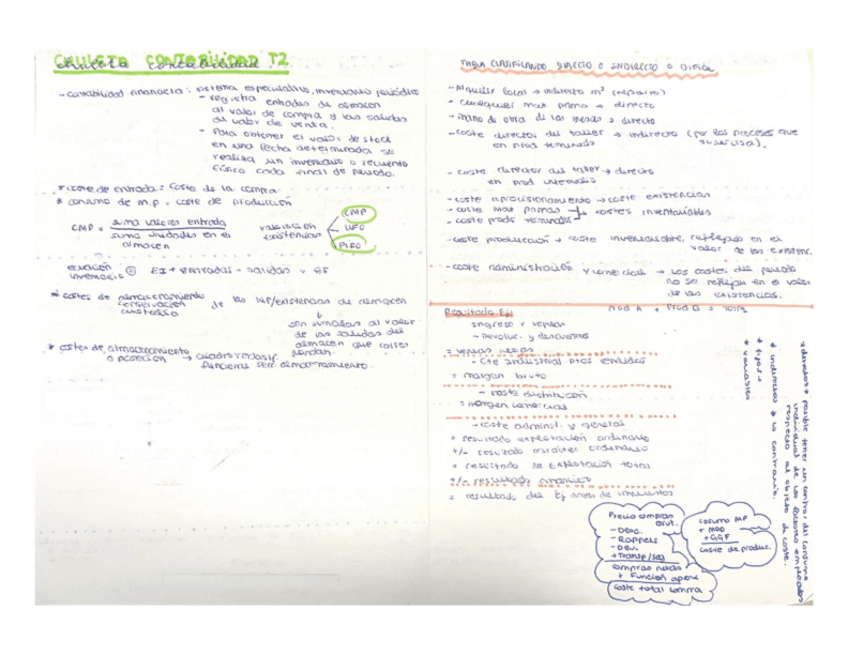 CHULETA CONTABILIDAD T2
- contabilidad financiera: sistema especulativo, inventario periódico
- registra entradas de almacen
al valor de compra y las salidas
al valor de venta.
- Para obtener el valor de stock
en una fecha determinada se
realiza un inventario o recuento
físico cada final de periodo.
* coste de entrada: coste de la compra
* consumo de m.p = coste de producción
CMP = suma valores entrada
suma unidades en el
almacen
valoración
existencias
CMP
FIFO
ecuación
inventario
EI + entradas = salidas + EF
* costes de almacenamiento
conservación
custodia
de las MP/existencias de almacén
son sumadas al valor
de las salidas del
almacen que
* costes de almacenamiento
o posesión → cuadro
almacenamiento.
TABLA CLASIFICANDO DIRECTO O INDIRECTO
- Alquiler local → indirecto m² (reparto)
- cualquier mat prima → directo
- mano de obra → directo
- coste director del taller → indirecto (por los procesos que
supervisa).
en prod terminado
- coste director del taller → directo
en prod
- coste aprovisionamiento → coste existencias
- coste mat primas
- coste prods terminados
costes inventariables
- coste producción → coste inventariable, reflejado en el
valor de las existenc.
- coste administración y comercial → los costes del periodo
no se reflejan en el valor
de las existencias.
Prod A + Prod B = total
Resultado Ej:
ingreso x ventas
- Devoluc. y descuentos
= ventas netas
- cte industrial ptos vendidos
= margen bruto
- coste distribución
= margen comercial
- coste administ. y general
+ resultado explotación ordinario
+/- resultado ordinario
+ resultado de explotación total
+/- resultado financiero
= resultado del Ej antes de impuestos
* directos → posible tener un control del consumo
individual de los factores empleados
respecto al objeto de coste.
* indirectos → lo contrario.
* fijos
* variables
Precio compras
brut.
- Desc.
- Rappels
- Dev.
+ Transp/seg
compras netas
+ Función aprov
coste total compra
Consumo MP
+ MOD
+ GGF
coste de produc.